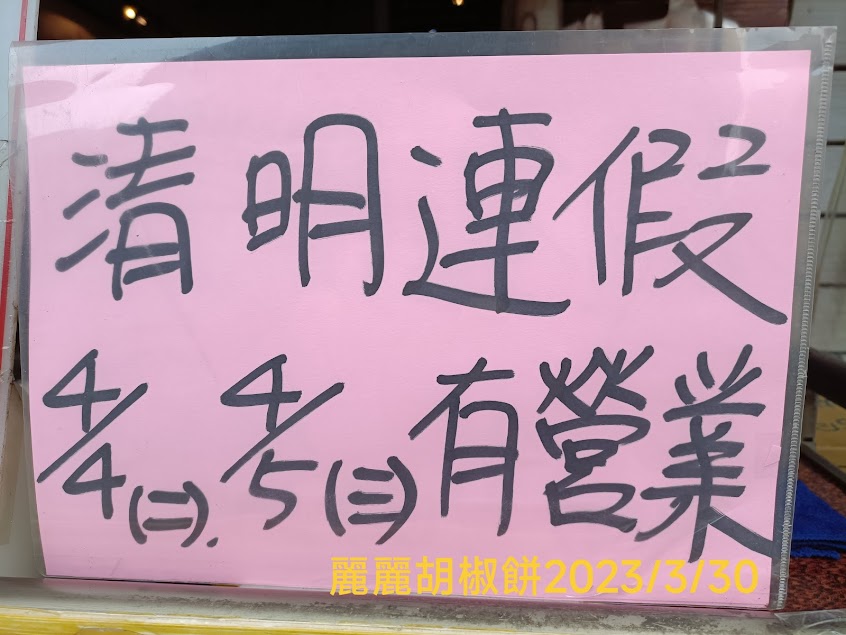 清明連假
4/4(二).4/5(三)有營業
麗麗胡椒餅2023/3/30